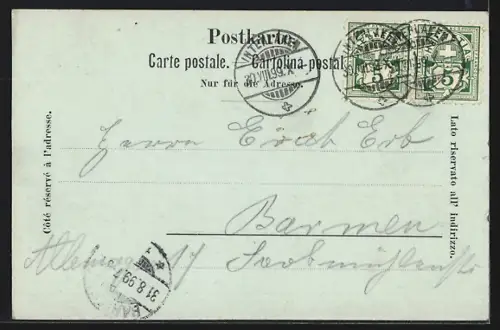 Postkarte.
Carte postale. Cartolina postale.
Nur für die Adresse.
Côté réservé à l'adresse.
Lato riservato all' indirizzo.
INTERLAKEN
30.VIII.99.X
5 5
Herrn Erb
Barmen
Allemagne 17
31.8.99.7
BARMEN